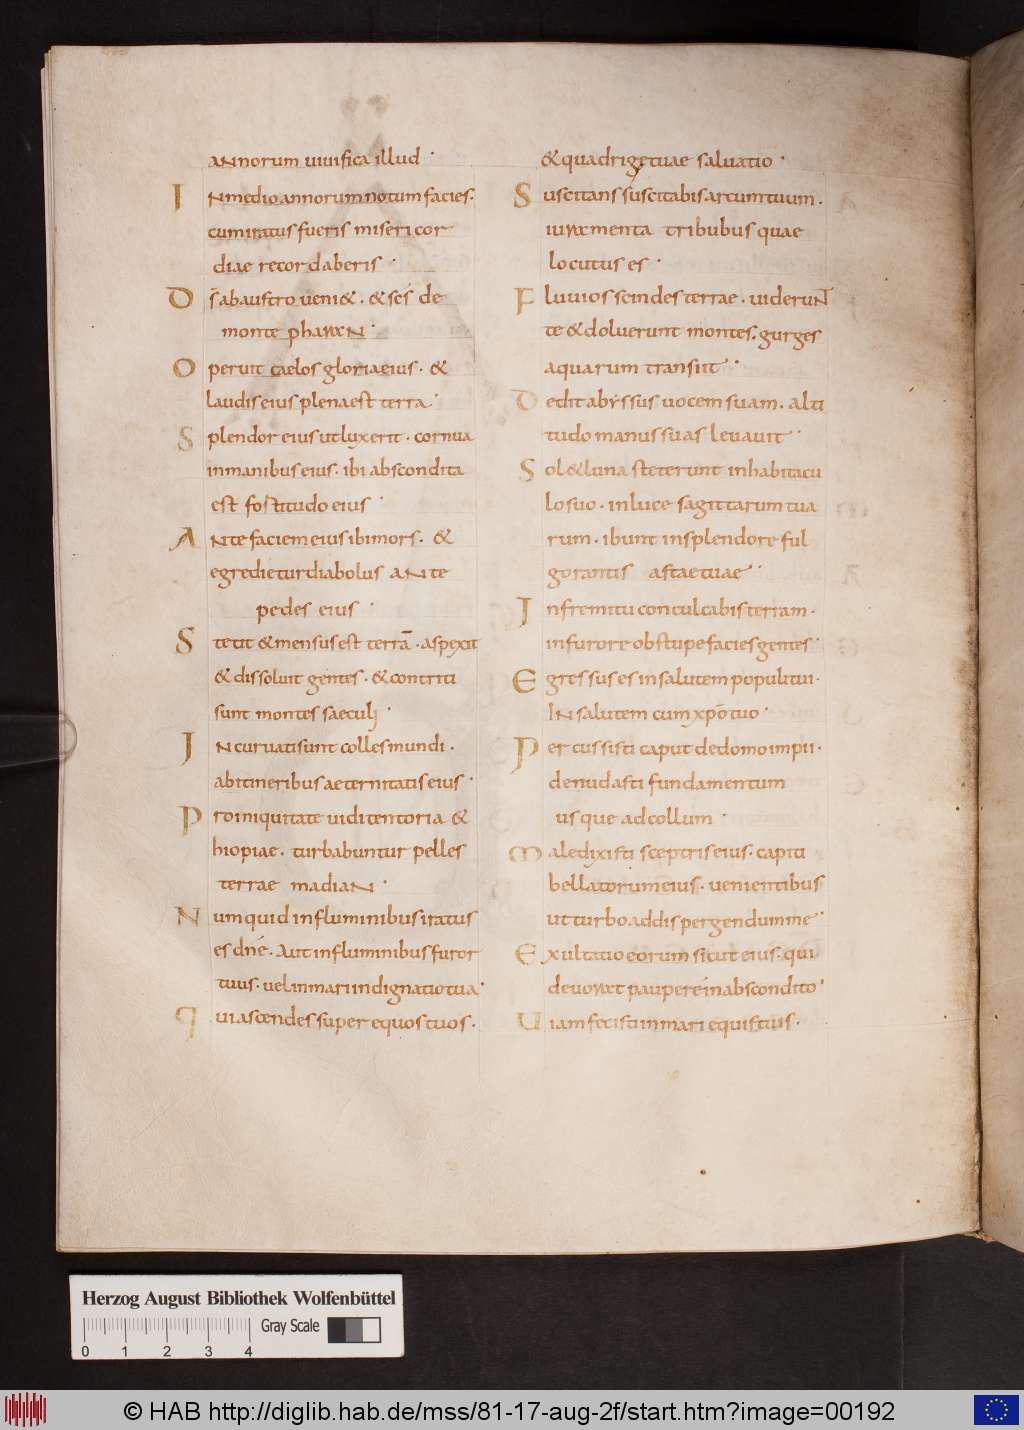 annorum uiuifica illud ·
In medio annorum notum facies.
cum iratus fueris misericor
diae recordaberis ·
Ds̄ ab austro ueni& . & sc̄s de
monte pharan ·
Operuit caelos gloria eius . &
laudis eius plena est terra ·
Splendor eius ut lux erit . cornua
in manibus eius . ibi abscondita
est fortitudo eius ·
Ante faciem eius ibi mors . &
egredietur diabolus ante
pedes eius ·
Stetit & mensus est terrā . aspexit
& dissoluit gentes . & contriti
sunt montes saeculi ·
Incuruati sunt colles mundi .
ab itineribus aeternitatis eius ·
Pro iniquitate uidi tentoria &
hiopiae . turbabuntur pelles
terrae madian ·
Numquid in fluminibus iratus
es dn̄e . Aut in fluminibus furor
tuus . uel in mari indignatio tua ·
Qui ascendes super equos tuos .
& quadrige tuae saluatio ·
Suscitans suscitabis arcum tuum .
iuramenta tribubus quae
locutus es ·
Fluuios scindes terrae . uiderunt
te & doluerunt montes . gurges
aquarum transiit ·
Dedit abyssus uocem suam . alti
tudo manus suas leuauit ·
Sol & luna steterunt in habitacu
lo suo . in luce sagittarum tua
rum . ibunt in splendore ful
gorantis astae tuae ·
In fremitu conculcabis terram .
in furore obstupefacies gentes ·
Egressus es in salutem populi tui .
In salutem cum xp̄o tuo ·
Percussisti caput de domo impii .
denudasti fundamentum
usque ad collum ·
Maledixisti sceptris eius . capiti
bellatorum eius . uenientibus
ut turbo ad dispergendum me ·
Exultatio eorum sicut eius . qui
deuorat pauperem in abscondito ·
Uiam fecisti in mari equis tuis .
Herzog August Bibliothek Wolfenbüttel
Gray Scale
0 1 2 3 4
© HAB http://diglib.hab.de/mss/81-17-aug-2f/start.htm?image=00192